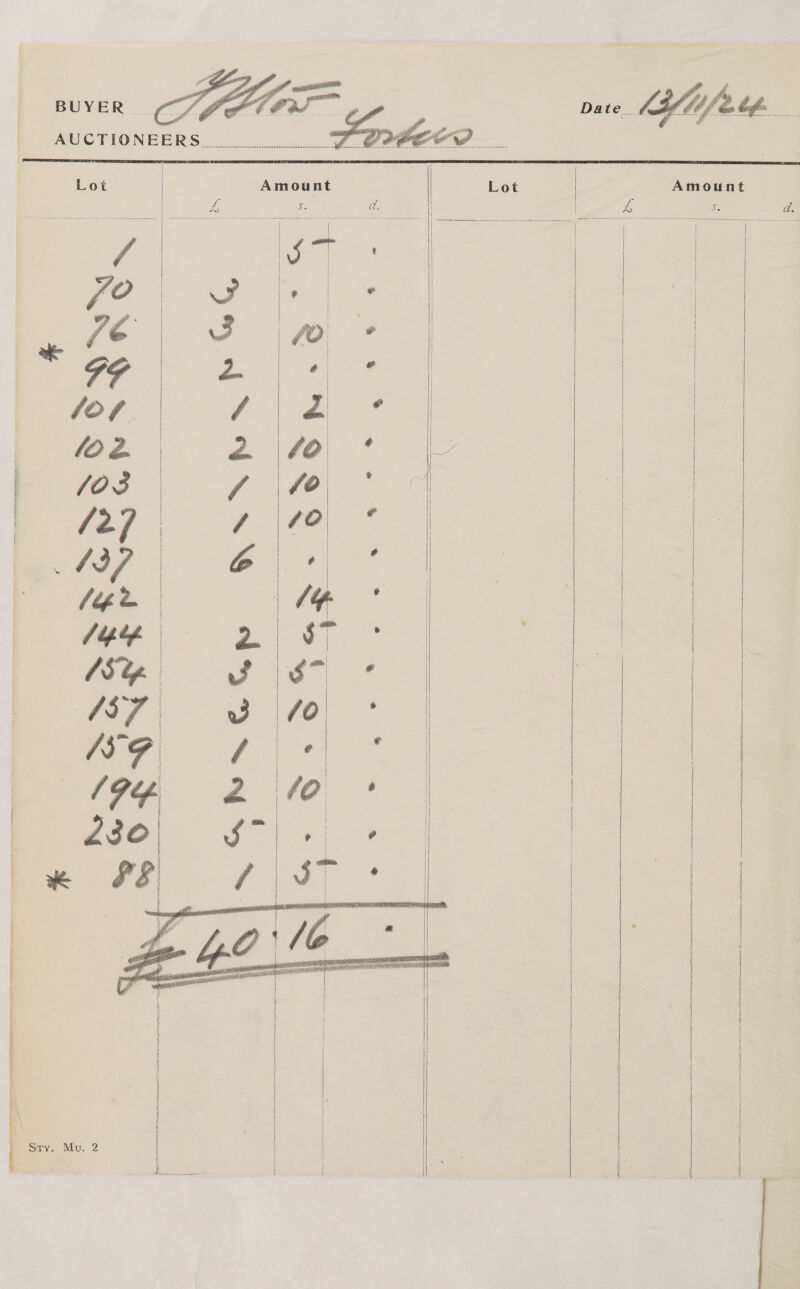 BUYER
Date 13/11/24
AUCTIONEERS Fosters
Lot Amount Lot Amount
£ s. d. £ s. d.
1 5 .
70 3 . .
76 3 10 .
* 99 2 . .
101 1 2 .
102 2 10 .
103 1 10 .
127 1 10 .
137 6 . .
142 14 .
144 2 5 .
154 3 5 .
157 3 10 .
159 1 . .
194 2 10 .
230 5 . .
* 88 1 5 .
£ 40 . 16 .
Sty. Mu. 2